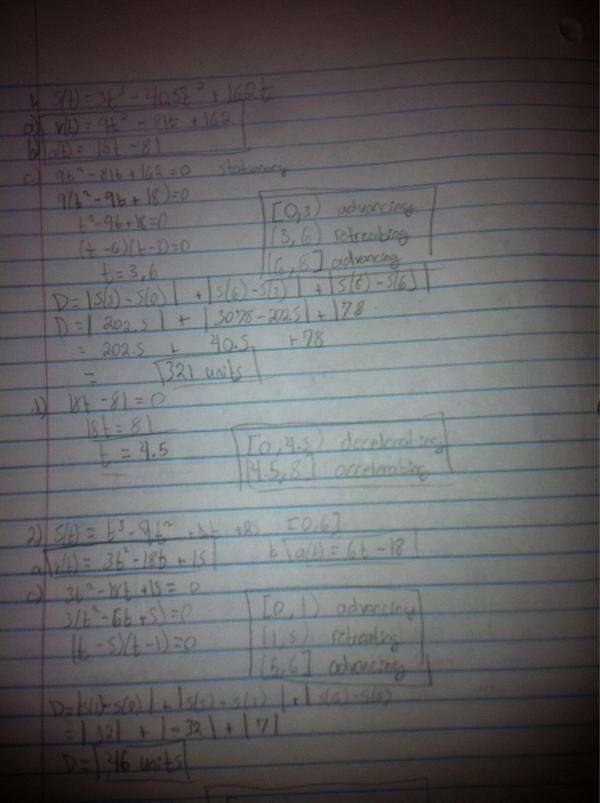 1. s(t) = 3t³ - 40.5t² + 162t
a) v(t) = 9t² - 81t + 162
b) a(t) = 18t - 81
c) 9t² - 81t + 162 = 0 stationary
9(t² - 9t + 18) = 0
t² - 9t + 18 = 0
(t - 6)(t - 3) = 0
t = 3, 6
[0, 3) advancing
(3, 6) retreating
(6, 8] advancing
D = |s(3) - s(0)| + |s(6) - s(3)| + |s(8) - s(6)|
D = | 202.5 | + | - 202.5 | + |78
= 202.5 + 40.5 + 78
= 321 units
18t - 81 = 0
18t = 81
t = 4.5
[0, 4.5) decelerating
(4.5, 8] accelerating
2) s(t) = t³ - 9t² + +25 [0, 6]
a v(t) = 3t² - 18t + 15
b a(t) = 6t - 18
c) 3t² - 18t + 15 = 0
3(t² - 6t + 5) = 0
(t - 5)(t - 1) = 0
[0, 1) advancing
(1, 5) retreating
(5, 6] advancing
D = |s(1) - s(0)| + |s(5) - s(1)| + | s(6) - s(5)
= | | + | - 32 | + | 7 |
D = 46 units